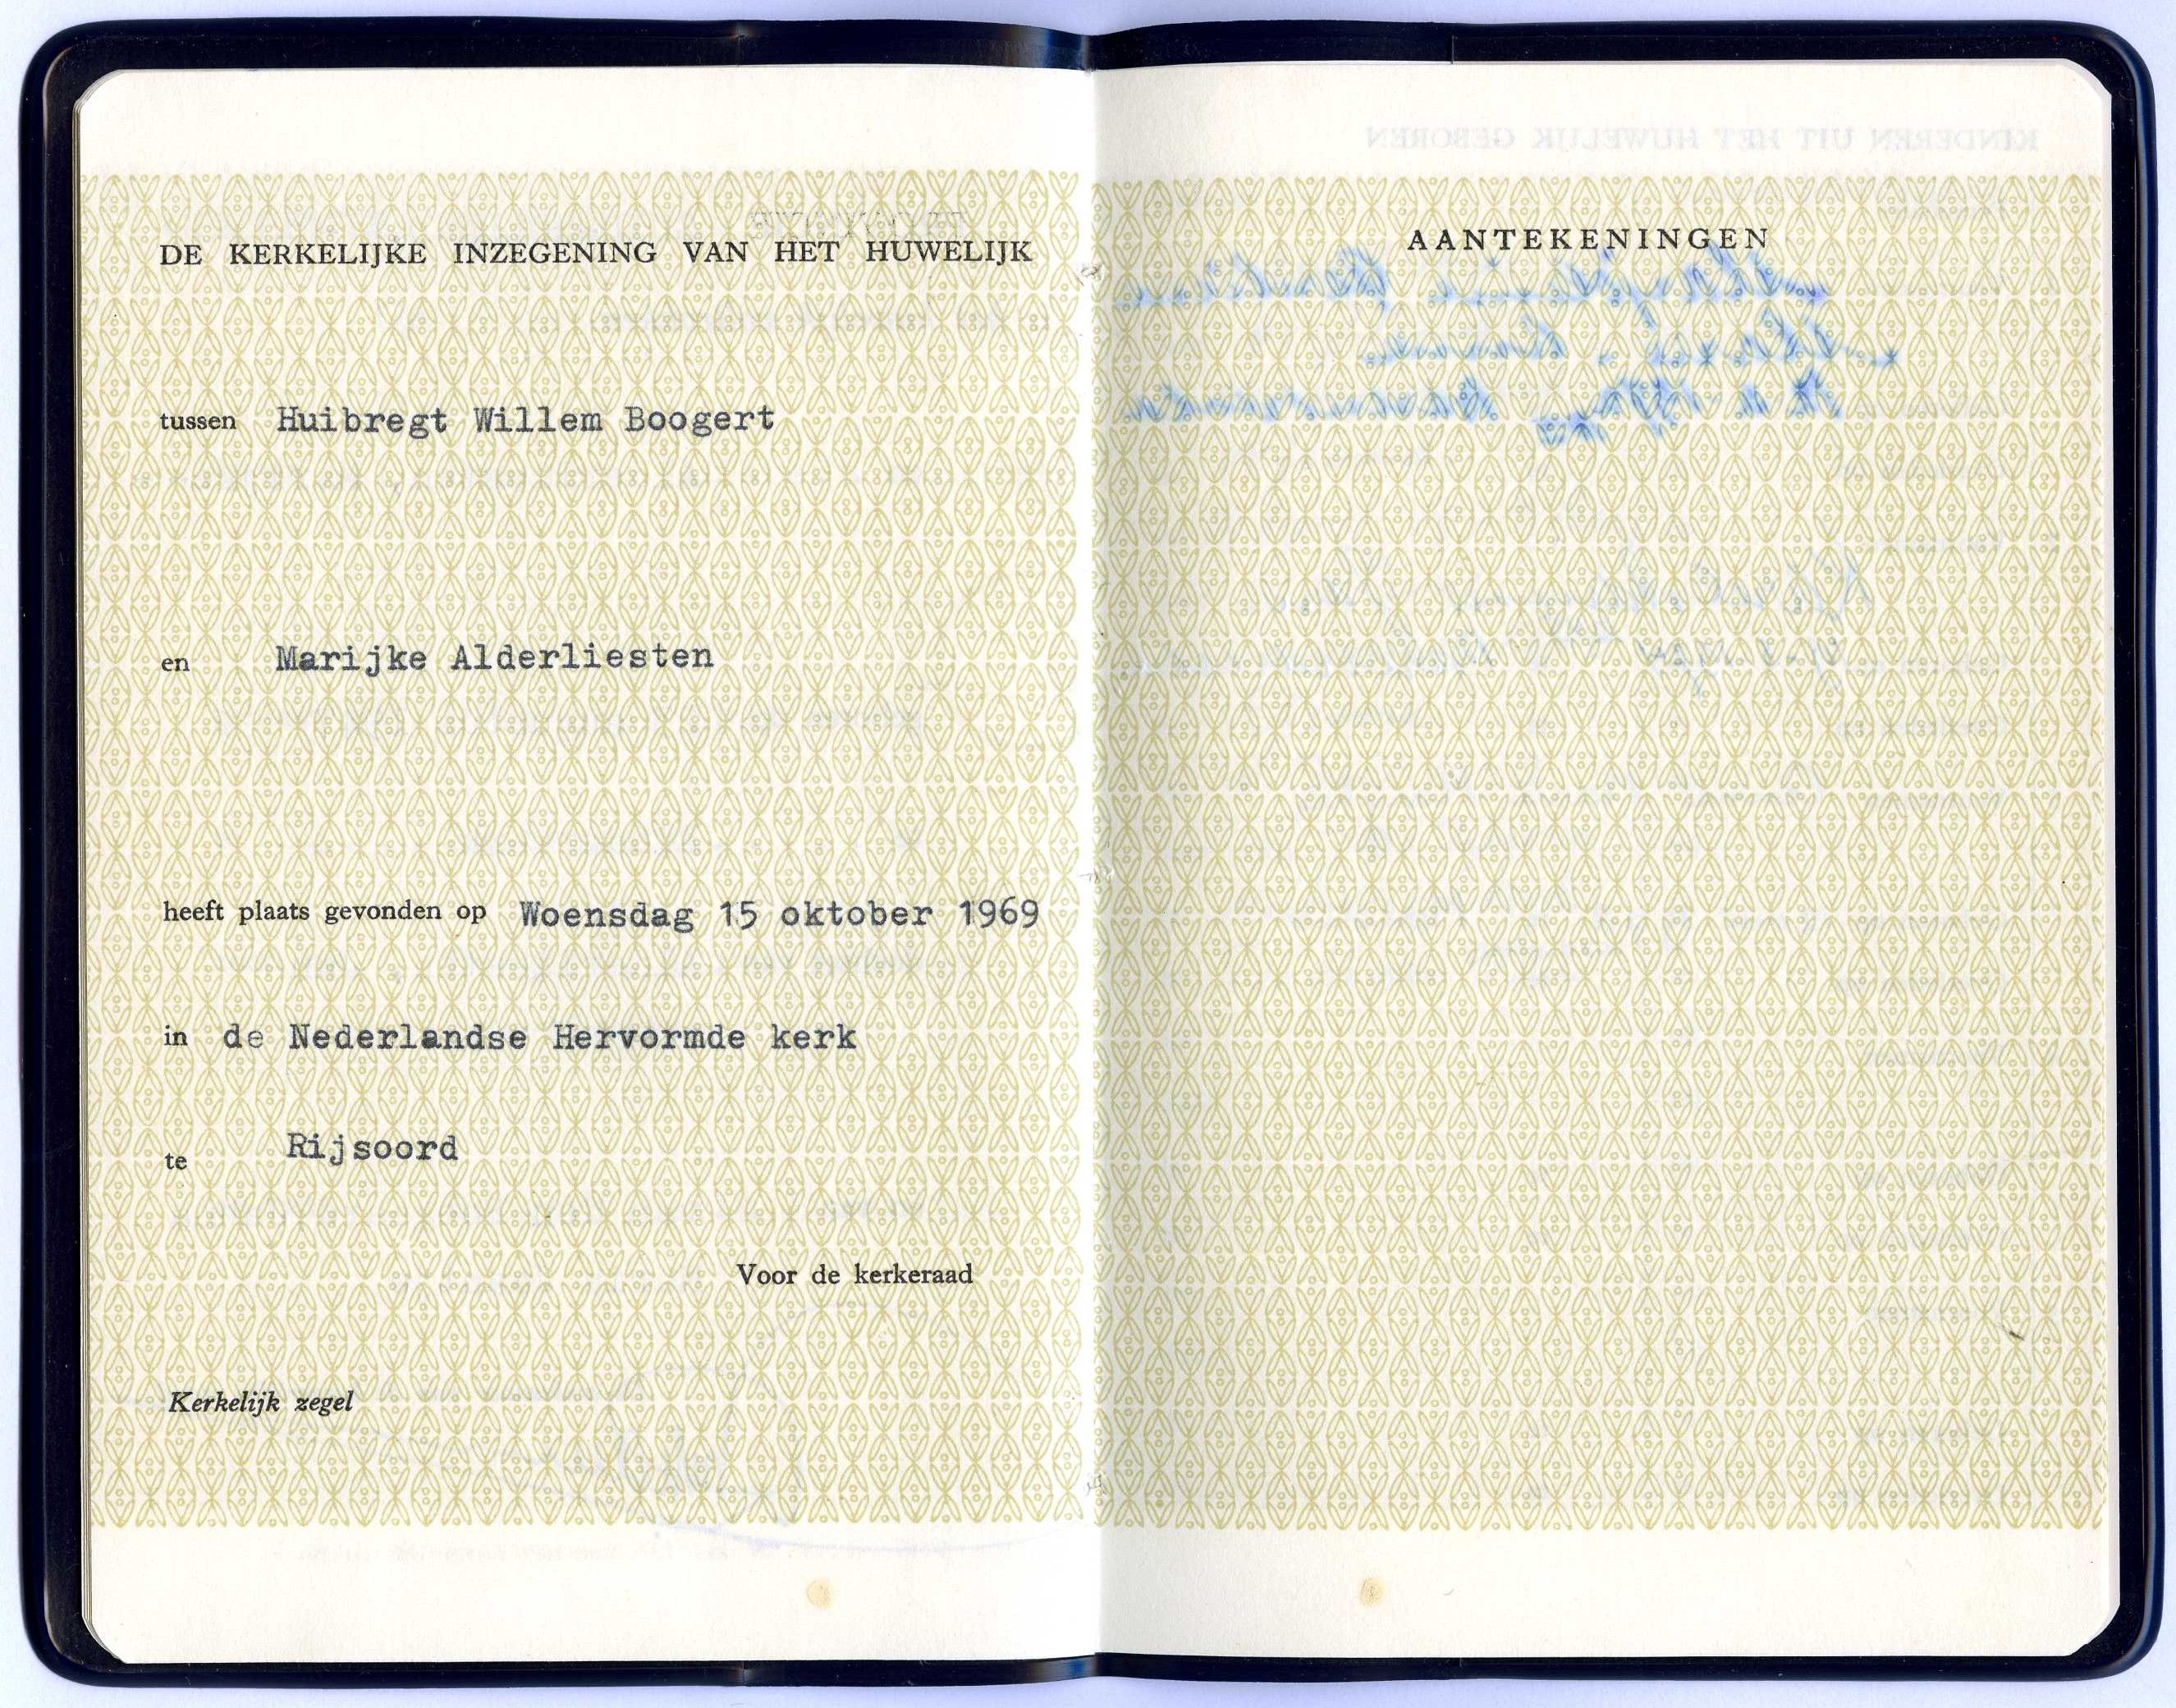 DE KERKELIJKE INZEGENING VAN HET HUWELIJK
tussen Huibregt Willem Boogert
en Marijke Alderliesten
heeft plaats gevonden op Woensdag 15 oktober 1969
in de Nederlandse Hervormde kerk
te Rijsoord
Voor de kerkeraad
Kerkelijk zegel
KINDEREN UIT HET HUWELIJK GEBOREN
AANTEKENINGEN